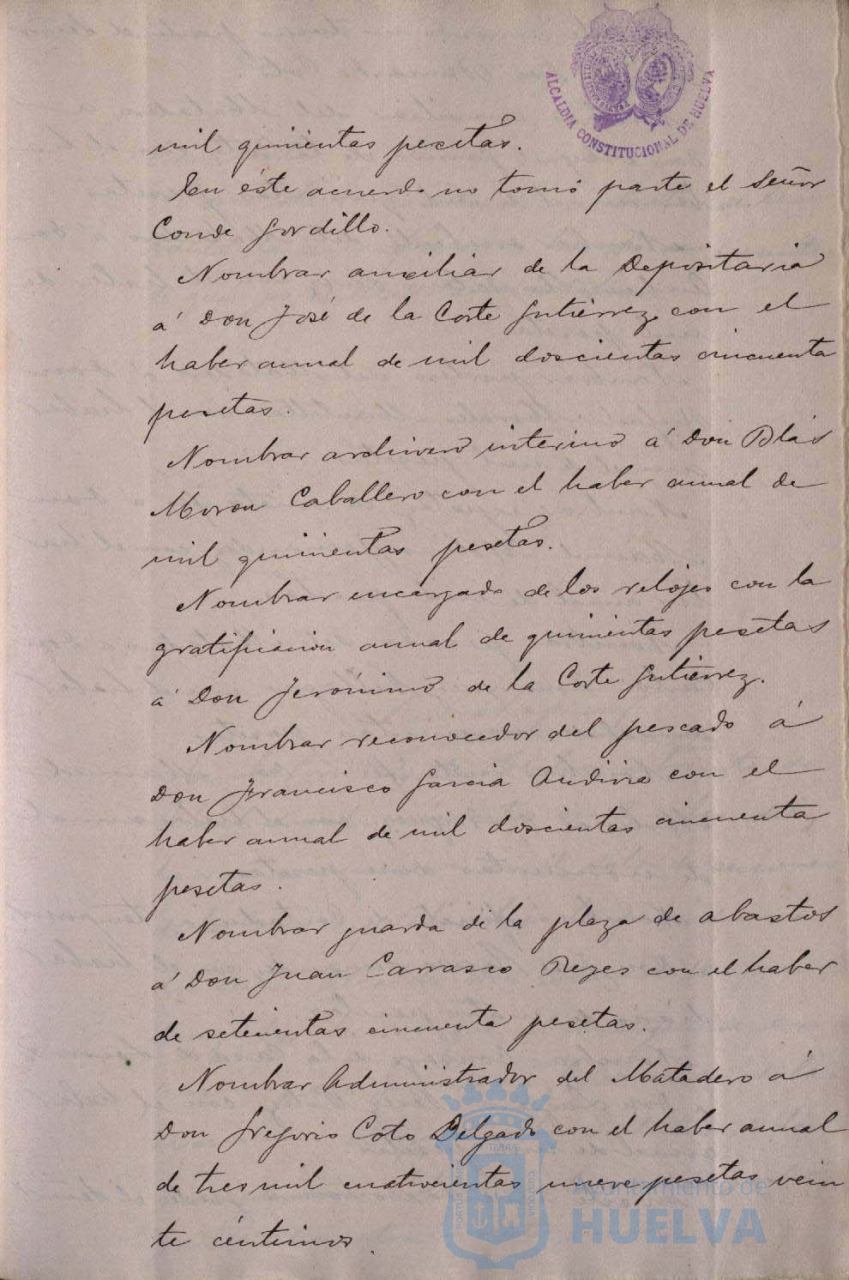 ALCALDIA CONSTITUCIONAL DE HUELVA
mil quinientas pesetas.
En éste acuerdo no tomó parte el Señor
Conde Gordillo.
Nombrar auxiliar de la Depositaria
á Don José de la Corte Gutiérrez con el
haber anual de mil doscientas cincuenta
pesetas.
Nombrar archivero interino á Don Blás
Moron Caballero con el haber anual de
mil quinientas pesetas.
Nombrar encargado de los relojes con la
gratificacion anual de quinientas pesetas
á Don Jerónimo de la Corte Gutiérrez.
Nombrar reconocedor del pescado á
Don Francisco Garcia con el
haber anual de mil doscientas cincuenta
pesetas.
Nombrar guarda de la plaza de abastos
á Don Juan Carrasco Reyes con el haber
de setecientas cincuenta pesetas.
Nombrar Administrador del Matadero á
Don Gregorio Coto Delgado con el haber anual
de tres mil cuatrocientas nueve pesetas vein
te céntimos.
Ayuntamiento de
HUELVA